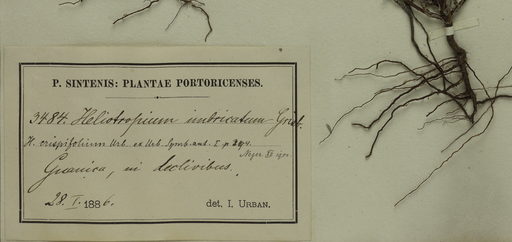 P. SINTENIS: PLANTAE PORTORICENSES.
3484. Heliotropium imbricatum Grisb.
H. crispifolium Urb. ex Urb. Symb. ant. I. p.
Guanica, in declivibus.
28. I. 1886. det. I. URBAN.